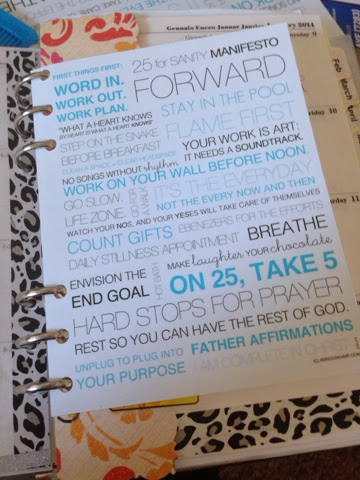 FIRST THINGS FIRST:
25 for SANITY MANIFESTO
WORD IN.
WORK OUT.
WORK PLAN.
FORWARD
"WHAT A HEART KNOWS
BY HEART IS WHAT A HEART KNOWS"
STAY IN THE POOL
STEP ON THE SNAKE
BEFORE BREAKFAST
FLAME FIRST
YOUR WORK IS ART:
IT NEEDS A SOUNDTRACK.
NO SONGS WITHOUT rhythm
WORK ON YOUR WALL BEFORE NOON.
GO SLOW.
LIFE ZONE
IT'S THE EVERYDAY
NOT THE EVERY NOW AND THEN
WATCH YOUR NOs, AND YOUR YESES WILL TAKE CARE OF THEMSELVES
COUNT GIFTS
EBENEZERS FOR THE EFFORTS
DAILY STILLNESS APPOINTMENT
BREATHE
ENVISION THE
END GOAL
MAKE laughter YOUR chocolate
ON 25, TAKE 5
HARD STOPS FOR PRAYER
REST SO YOU CAN HAVE THE REST OF GOD.
UNPLUG TO PLUG INTO
YOUR PURPOSE
FATHER AFFIRMATIONS
I AM COMPLETE IN CHRIST
Gennaio Enero Januar Janvier January 2014
Feb
March
April